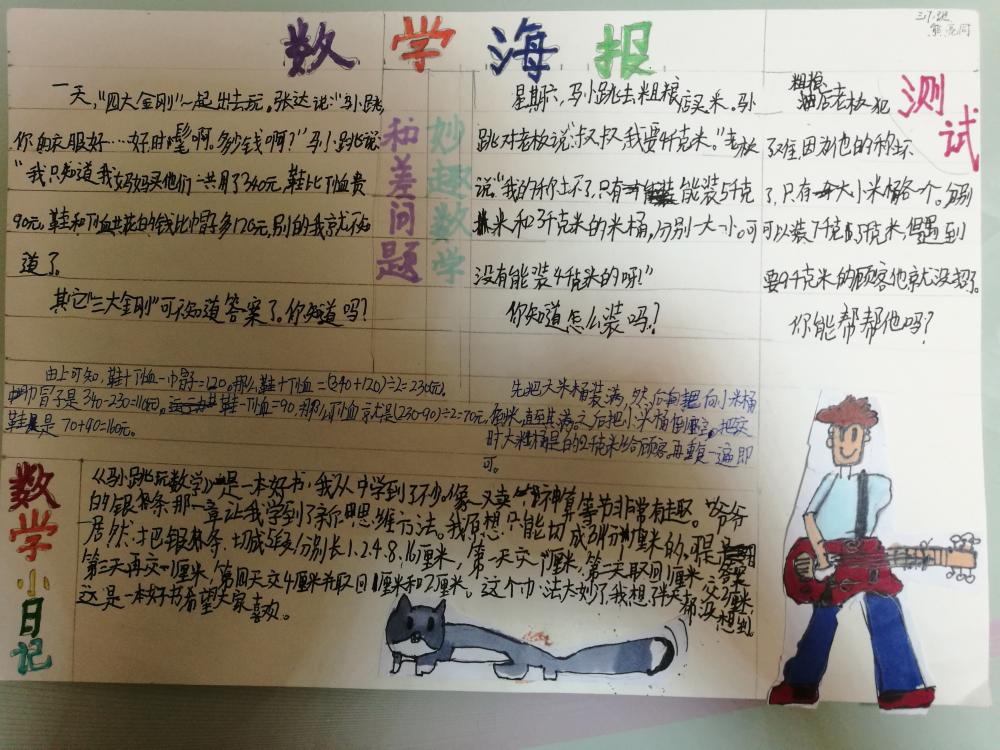 数学海报
一天，“四大金刚”一起出去玩。张达说：“马小跳
你的衣服好……好时髦啊。多少钱啊？”马小跳说：
“我只知道我妈妈买他们一共用了340元，鞋比T恤贵
90元，鞋和T恤共花的钱比帽子多120元，别的我就不知
道了。
其它“三大金刚”可不知道答案了。你知道吗？
和差问题
妙趣数学
星期六，马小跳去粗粮店买米。马小
跳对老板说：“叔叔，我要4千克米。”老板
说：“我的秤坏了，只有能装5千克
米和3千克米的米桶，分别一大一小。可
没有能装4千克米的呀！”
你知道怎么装吗？
测试
粗粮
店老板犯
了难，因为他的秤坏
了，只有大小米桶各一个。分别
可以装7千克 5千克米，但遇到
要4千克米的顾客他就没招了。
你能帮帮他吗？
由上可知，鞋+T恤-帽子=120。那么鞋+T恤=(340+120)÷2=230元。
帽子是340-230=110元。鞋-T恤=90，那么T恤就是(230-90)÷2=70元，
鞋是70+90=160元。
先把大米桶装满，然后向小米桶
倒米，直至其满，之后把小米桶倒空。把
时大米桶里的2千克米给顾客，再重复一遍即
可。
数学小日记
《马小跳玩数学》是一本好书，我从中学到了不少。像神算等节非常有趣。爷爷
的银条那一章让我学到了新思维方法。我原想只能切成31份1厘米的，可是
居然才把银条切成5段分别长1.2.4.8.16厘米，第一天交1厘米，第二天取回1厘米，交2厘米，
第三天再交1厘米，第四天交4厘米并取回1厘米和2厘米。这个办法太妙了我想了半天都没想出。
这是一本好书希望大家喜欢。